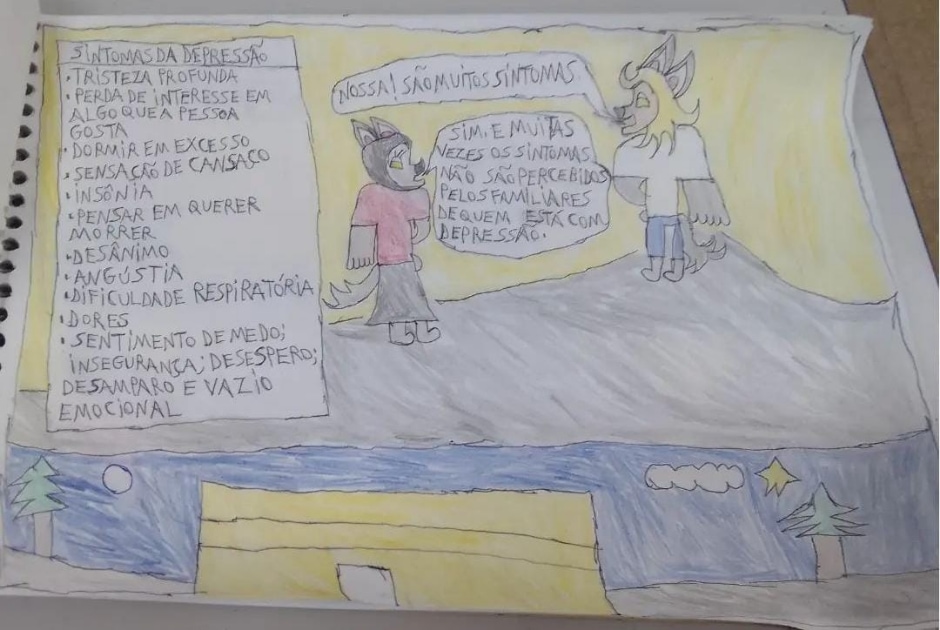 SINTOMAS DA DEPRESSÃO
• TRISTEZA PROFUNDA
• PERDA DE INTERESSE EM
ALGO QUE A PESSOA
GOSTA
• DORMIR EM EXCESSO
• SENSAÇÃO DE CANSAÇO
• INSÔNIA
• PENSAR EM QUERER
MORRER
• DESÂNIMO
• ANGÚSTIA
• DIFICULDADE RESPIRATÓRIA
• DORES
• SENTIMENTO DE MEDO;
INSEGURANÇA; DESESPERO;
DESAMPARO E VAZIO
EMOCIONAL
NOSSA! SÃO MUITOS SINTOMAS
SIM, E MUITAS
VEZES OS SINTOMAS
NÃO SÃO PERCEBIDOS
PELOS FAMILIARES
DE QUEM ESTÁ COM
DEPRESSÃO.